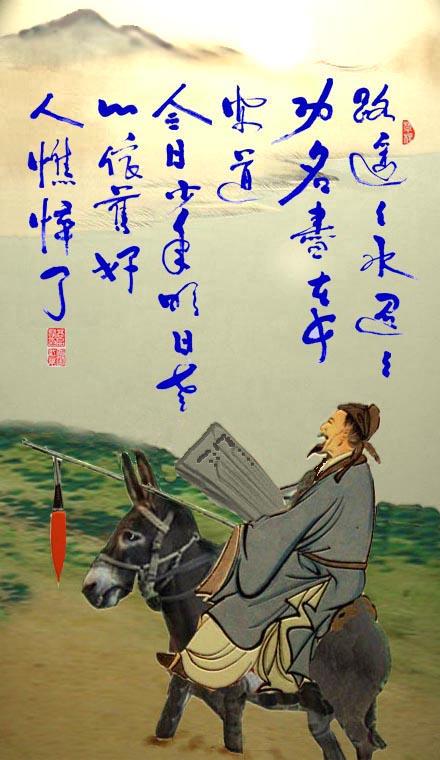 路遥々水迢々
功名盡在长
安道
今日少年明日老
山依舊好
人憔悴了